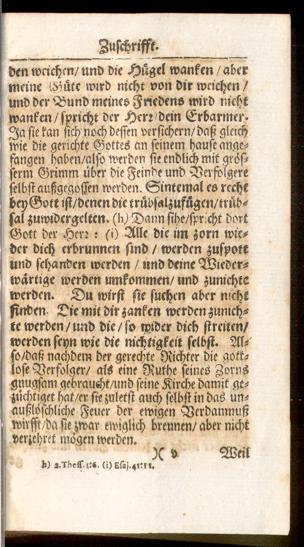 Zuschrifft.
den weichen/ und die Hügel wanken/ aber
meine Güte wird nicht von dir weichen/
und der Bund meines Friedens wird nicht
wanken/ spricht der Herr/ dein Erbarmer.
Ja sie kan sich noch dessen versichern/ daß gleich
wie die gerichte Gottes an seinem hause ange-
fangen haben/ also werden sie endlich mit größ-
serm Grimm über die Feinde und Verfolgere
selbst außgegossen werden. Sintemal es recht
bey Gott ist/ denen die trübsal zufügen/ trüb-
sal zuwidergelten. (h) Dann sihe/ spricht dort
Gott der Herz: (i) Alle die im zorn wie-
der dich erbrunnen sind/ werden zuspott
und schanden werden/ und deine Wieder-
wärtige werden umkommen/ und zunichte
werden. Du wirst sie suchen aber nicht
finden. Die mit dir zanken werden zunich-
te werden/ und die/ so wider dich streiten/
werden seyn wie die nichtigkeit selbst. Al-
so/ daß nachdem der gerechte Richter die gott-
lose Verfolger/ als eine Ruthe seines Zorns
gnugsam gebraucht/ und seine Kirche damit ge-
züchtiget hat/ er sie zuletst auch selbst in das un-
außlöschliche Feuer der ewigen Verdamnuß
wirfft/ da sie zwar ewiglich brennen/ aber nicht
verzehret mögen werden.
)( v Weil
h) 2. Thess. 1:6. (i) Esaj. 41:11.